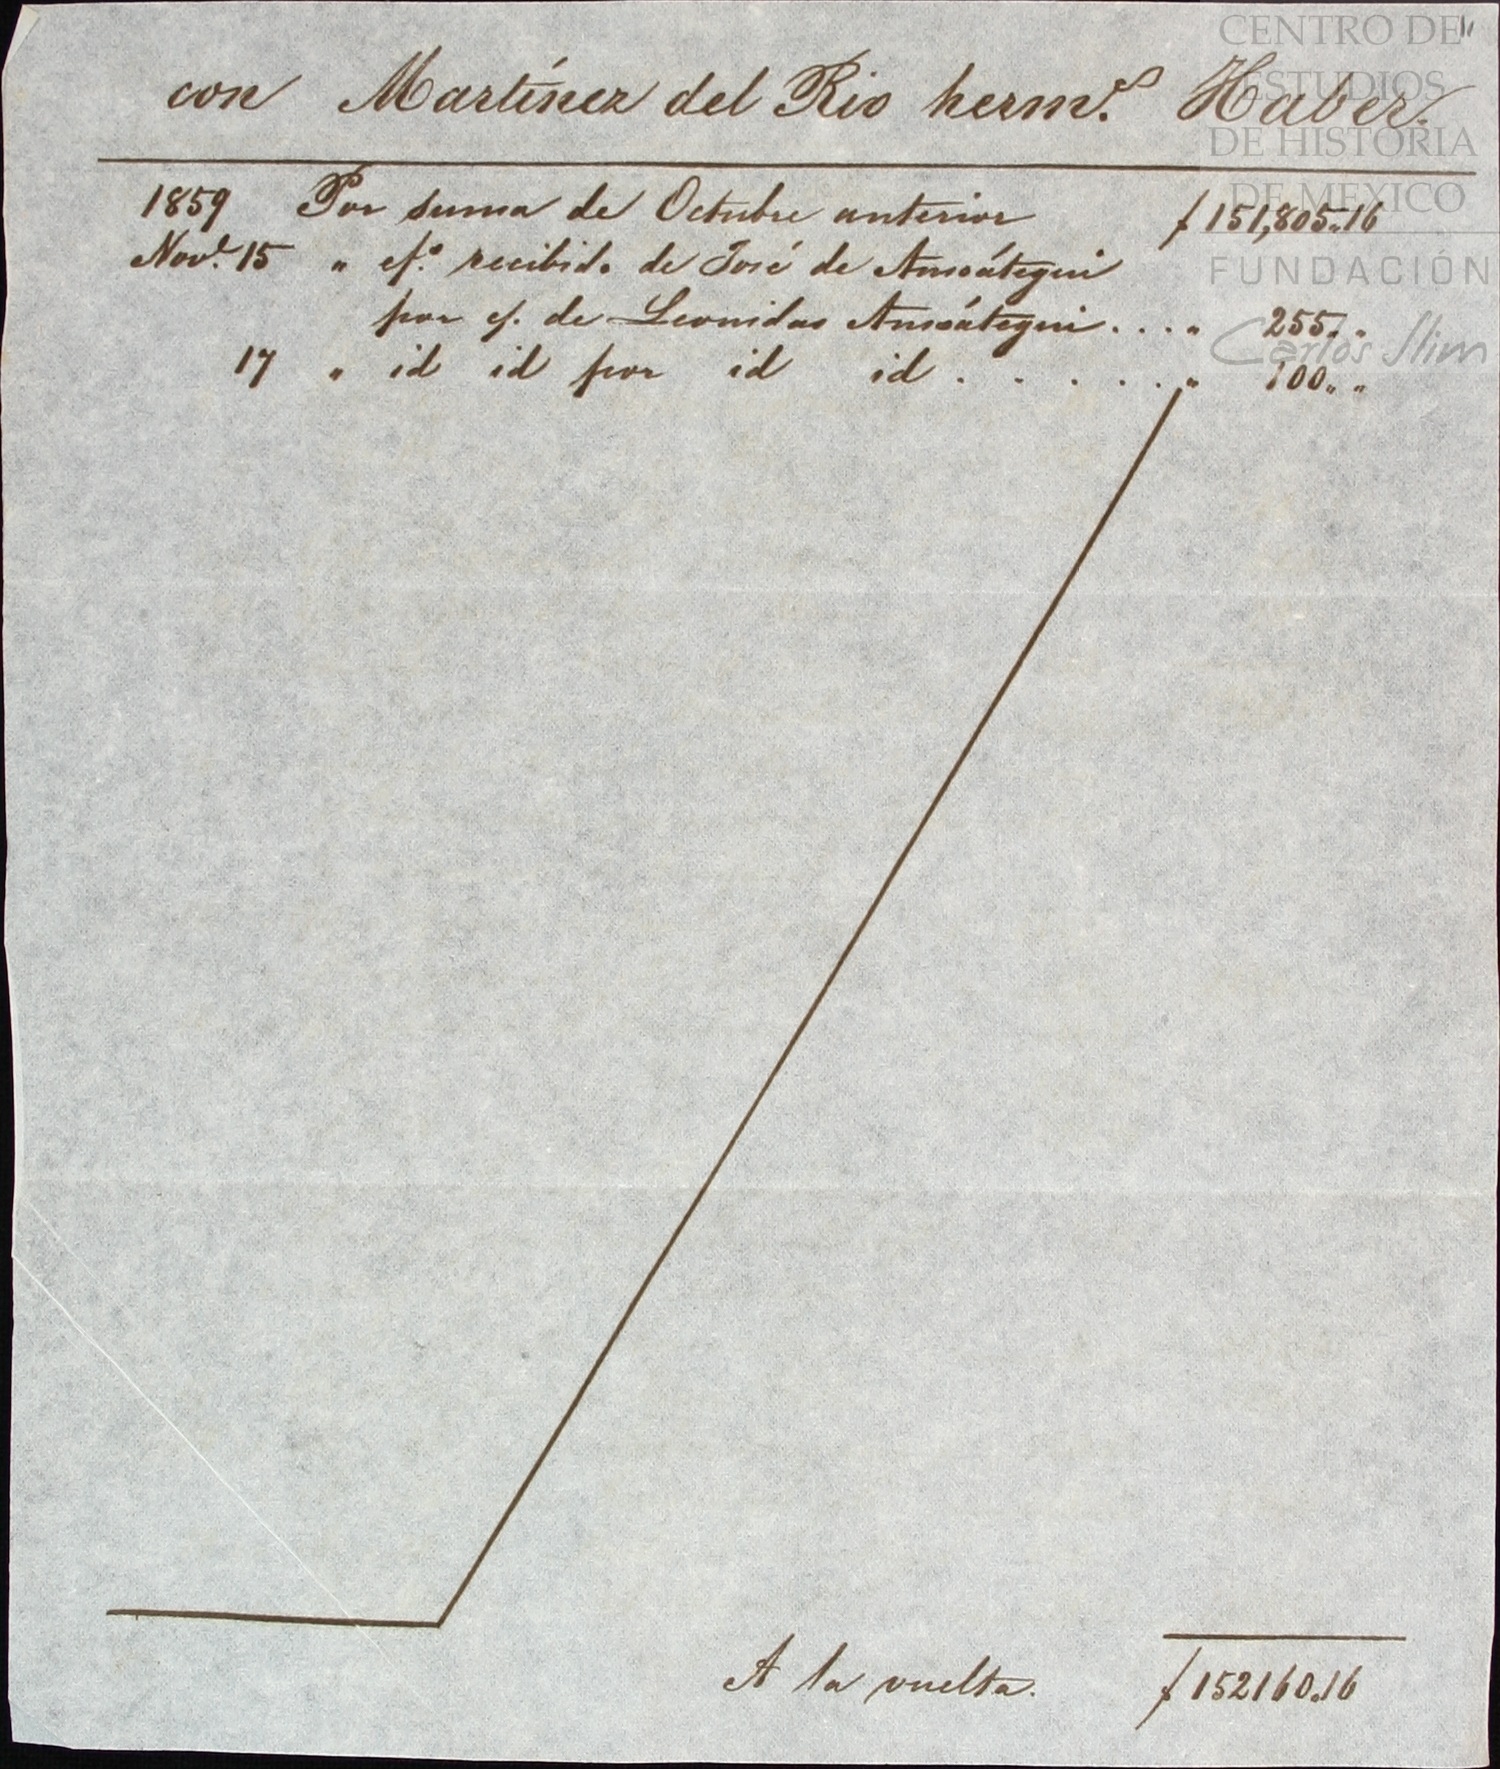 con Martínez del Rio herm.s Haber.
1859 Por suma de Octubre anterior $ 151,805.16
Nov.e 15 " ef.o recibido de José de Ansoátegui
por c/. de Leonidas Ansoátegui . . . " 255. "
17 " id id por id id . . . . . " 100 " "
A la vuelta. $ 152160.16
CENTRO DE
ESTUDIOS
DE HISTORIA
DE MEXICO
FUNDACIÓN
Carlos Slim